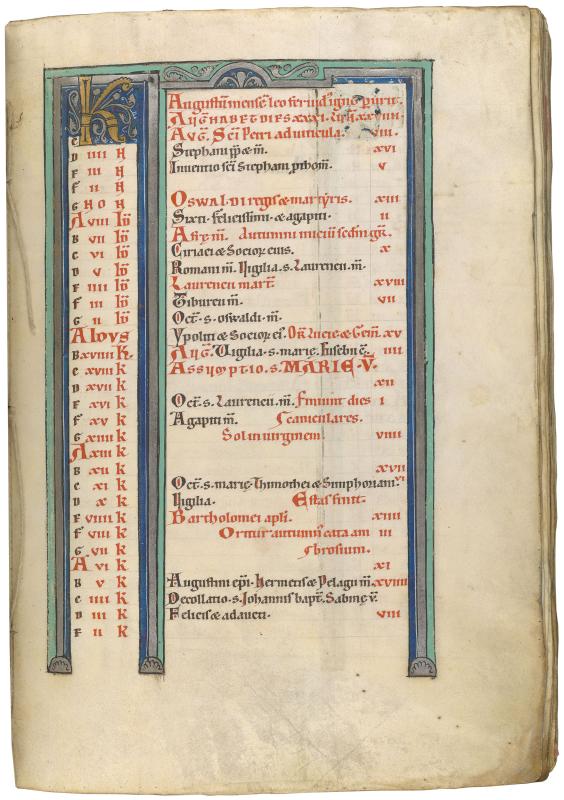 Augustū mense leo fervid' igne purit.
AUG HABET DIES XXXI. Lun̄ XXVIIII
C AUG. Sc̄i Petri ad uincula. VIII
D IIII N Stephani p̄p̄ & m̄. XVI
E III N Inuentio sc̄i Stephani p̄thom̄. V
F II N
G NON
A VIII ID OSWALDI regis & martyris. XIII
B VII ID Sixti. felicissimi. & agapiti. II
C VI ID Afrȩ m̄. Autumni iniciū
D V ID Ciriaci & Socior eius. X
E IIII ID Romani m̄. Vigilia. s. Laurentii. m̄.
F III ID Laurentii mart̄ XVIII
G II ID Tiburtii m̄. VII
A IDVS Oct̄. s. oswaldi. m̄.
B XVIIII K Ypoliti & Socior ei'. XV
C XVIII K AUG. Vigilia. s. mariȩ. Eusebii c̄. IIII
D XVII K ASSUMPTIO. S. MARIE. V.
E XVI K XII
F XV K Oct̄. s. Laurentii. m̄. Finiunt dies I
G XIIII K Agapiti m̄. caniculares.
A XIII K Sol in uirginem VIIII
B XII K
C XI K XVII
D X K Oct̄. s. mariȩ. Thimothei & Simphoriani. VI
E VIIII K Vigilia. Estas finit.
F VIII K Bartholomei apl̄i. XIIII
G VII K Oritur autumn' III
A VI K
B V K XI
C IIII K Augustini ep̄i. Hermetis & Pelagii m̄. XVIIII
D III K Decollatio. s. Iohannis bapt̄. Sabinȩ v̄.
E II K Felicis & adaucti. VIII